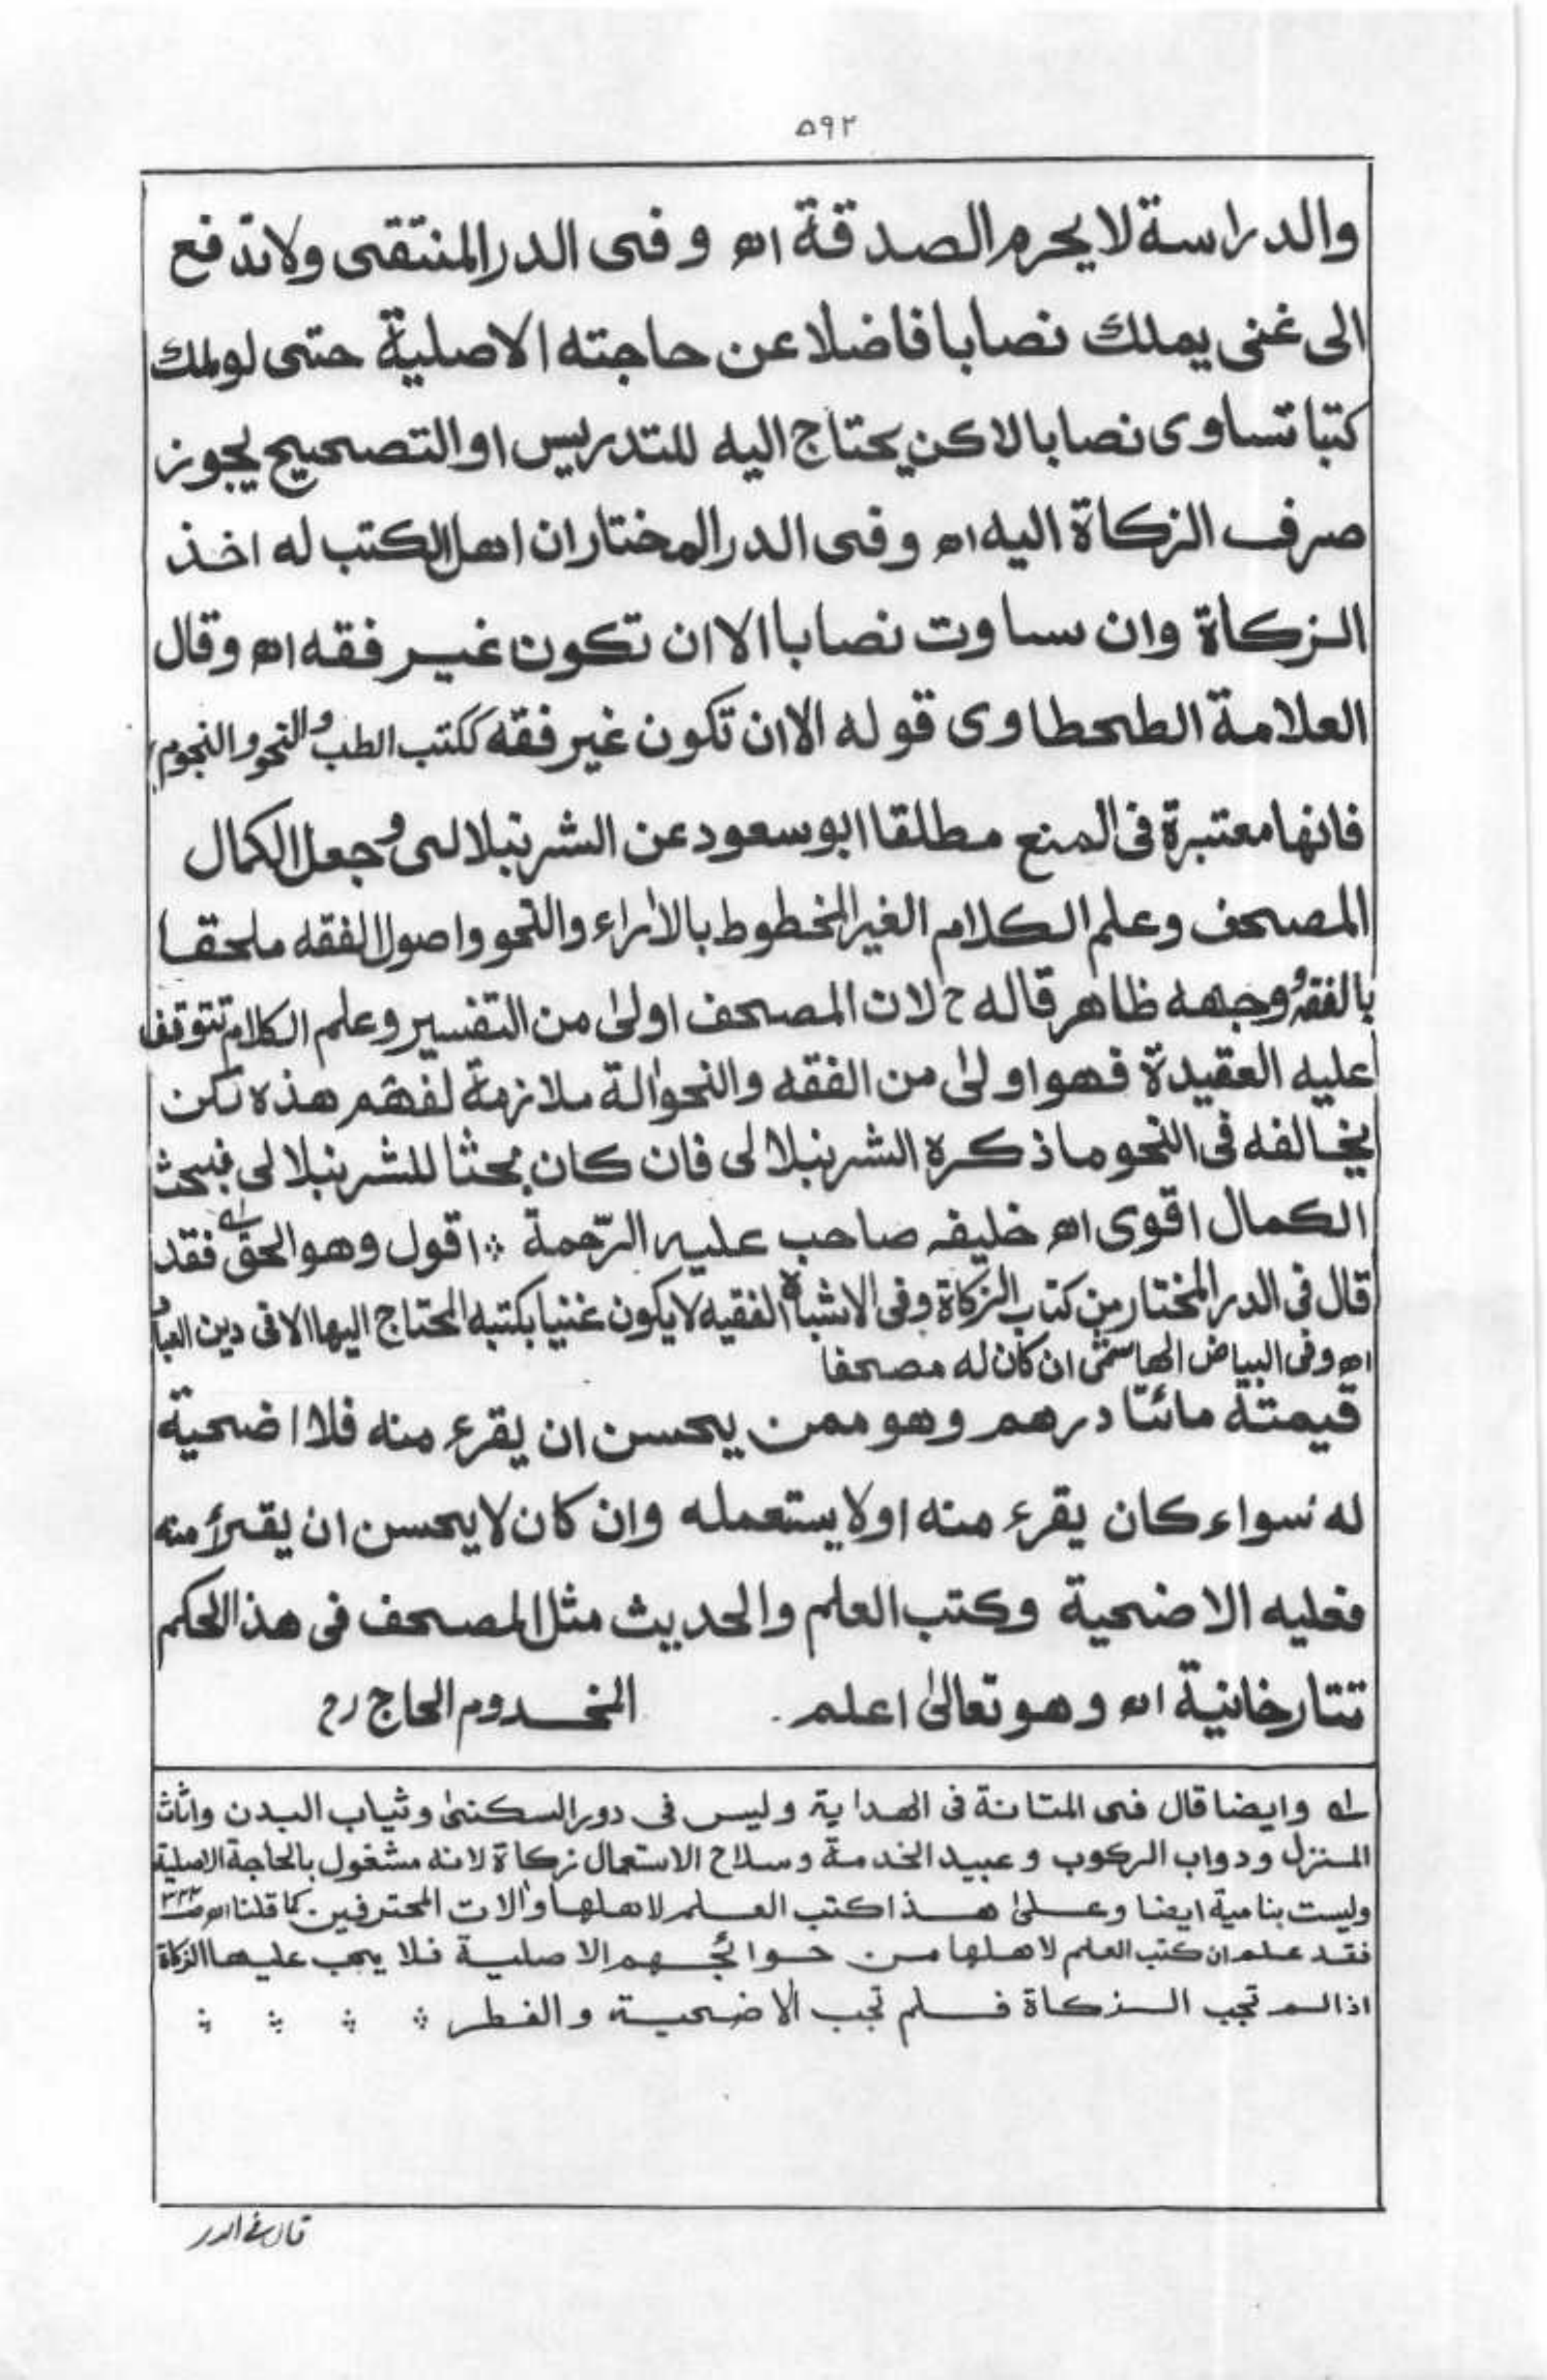 ٥٩٢
والدراسة لا يحرم الصدقة اه وفى الدر المنتقى ولا تدفع
الى غنى يملك نصابا فاضلا عن حاجته الاصلية حتى لو ملك
كتبا تساوى نصابا لاكن يحتاج اليه للتدريس او التصحيح يجوز
صرف الزكاة اليه اه وفى الدر المختار ان اهل الكتب له اخذ
الزكاة وان ساوت نصابا الا ان تكون غير فقه اه وقال
العلامة الطحطاوى قوله الا ان تكون غير فقه ككتب الطب والنحو والنجوم
فانها معتبرة فى المنع مطلقا ابو سعود عن الشرنبلالى وجعل الكمال
المصحف وعلم الكلام الغير المخطوط بالاراء والنحو واصول الفقه ملحقا
بالفقه ووجهه ظاهر قاله ح لان المصحف اولىٰ من التفسير وعلم الكلام تتوقف
عليه العقيدة فهو اولىٰ من الفقه والنحو الة ملازمة لفهم هذه لكن
يخالفه فى النحو ما ذكره الشرنبلالى فان كان بحثا للشرنبلالى فبحث
الكمال اقوى اه خليفه صاحب عليه الرّحمة ؞ اقول وهو الحق له فقد
قال فى الدر المختار من كتاب الزكاة وفى الاشباه الفقيه لا يكون غنيا بكتبه المحتاج اليها الا فى دين العباد
اه وفى البياض الهاشمى ان كان له مصحفا
قيمتة مائتا درهم وهو ممن يحسن ان يقرء منه فلا اضحية
له سواء كان يقرء منه او لا يستعمله وان كان لا يحسن ان يقرأ منه
فعليه الاضحية وكتب العلم والحديث مثل المصحف فى هذا الحكم
تتارخانية اه وهو تعالىٰ اعلم. المخدوم الحاج رح
له وايضا قال فى المتانة فى الهداية وليس فى دور السكنىٰ وثياب البدن واثاث
المنزل ودواب الركوب وعبيد الخدمة وسلاح الاستعمال زكاة لانه مشغول بالحاجة الاصلية
وليست بنامية ايضا وعلىٰ هذا كتب العلم لاهلها والات المحترفين كما قلنا اه ص٣٢٣
فقد علم ان كتب العلم لاهلها من حوائجهم الاصلية فلا يجب عليها الزكاة
اذا لم تجب الزكاة فلم تجب الاضحية والفطر ؞ ؞ ؞ ؞
قال فى الدر